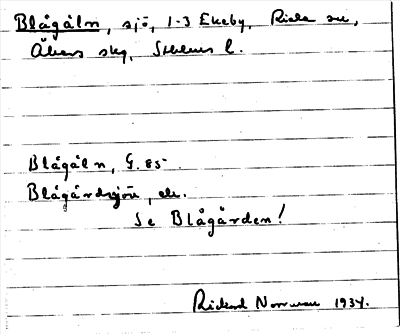 Blågåln, sjö, 1-3 Ekeby, Riala sn,
Åkers skg, Sthlms l.
Blågåln, G. 85
Blågårdssjön, ek.
Se Blågården!
Rickard Norrman 1934.